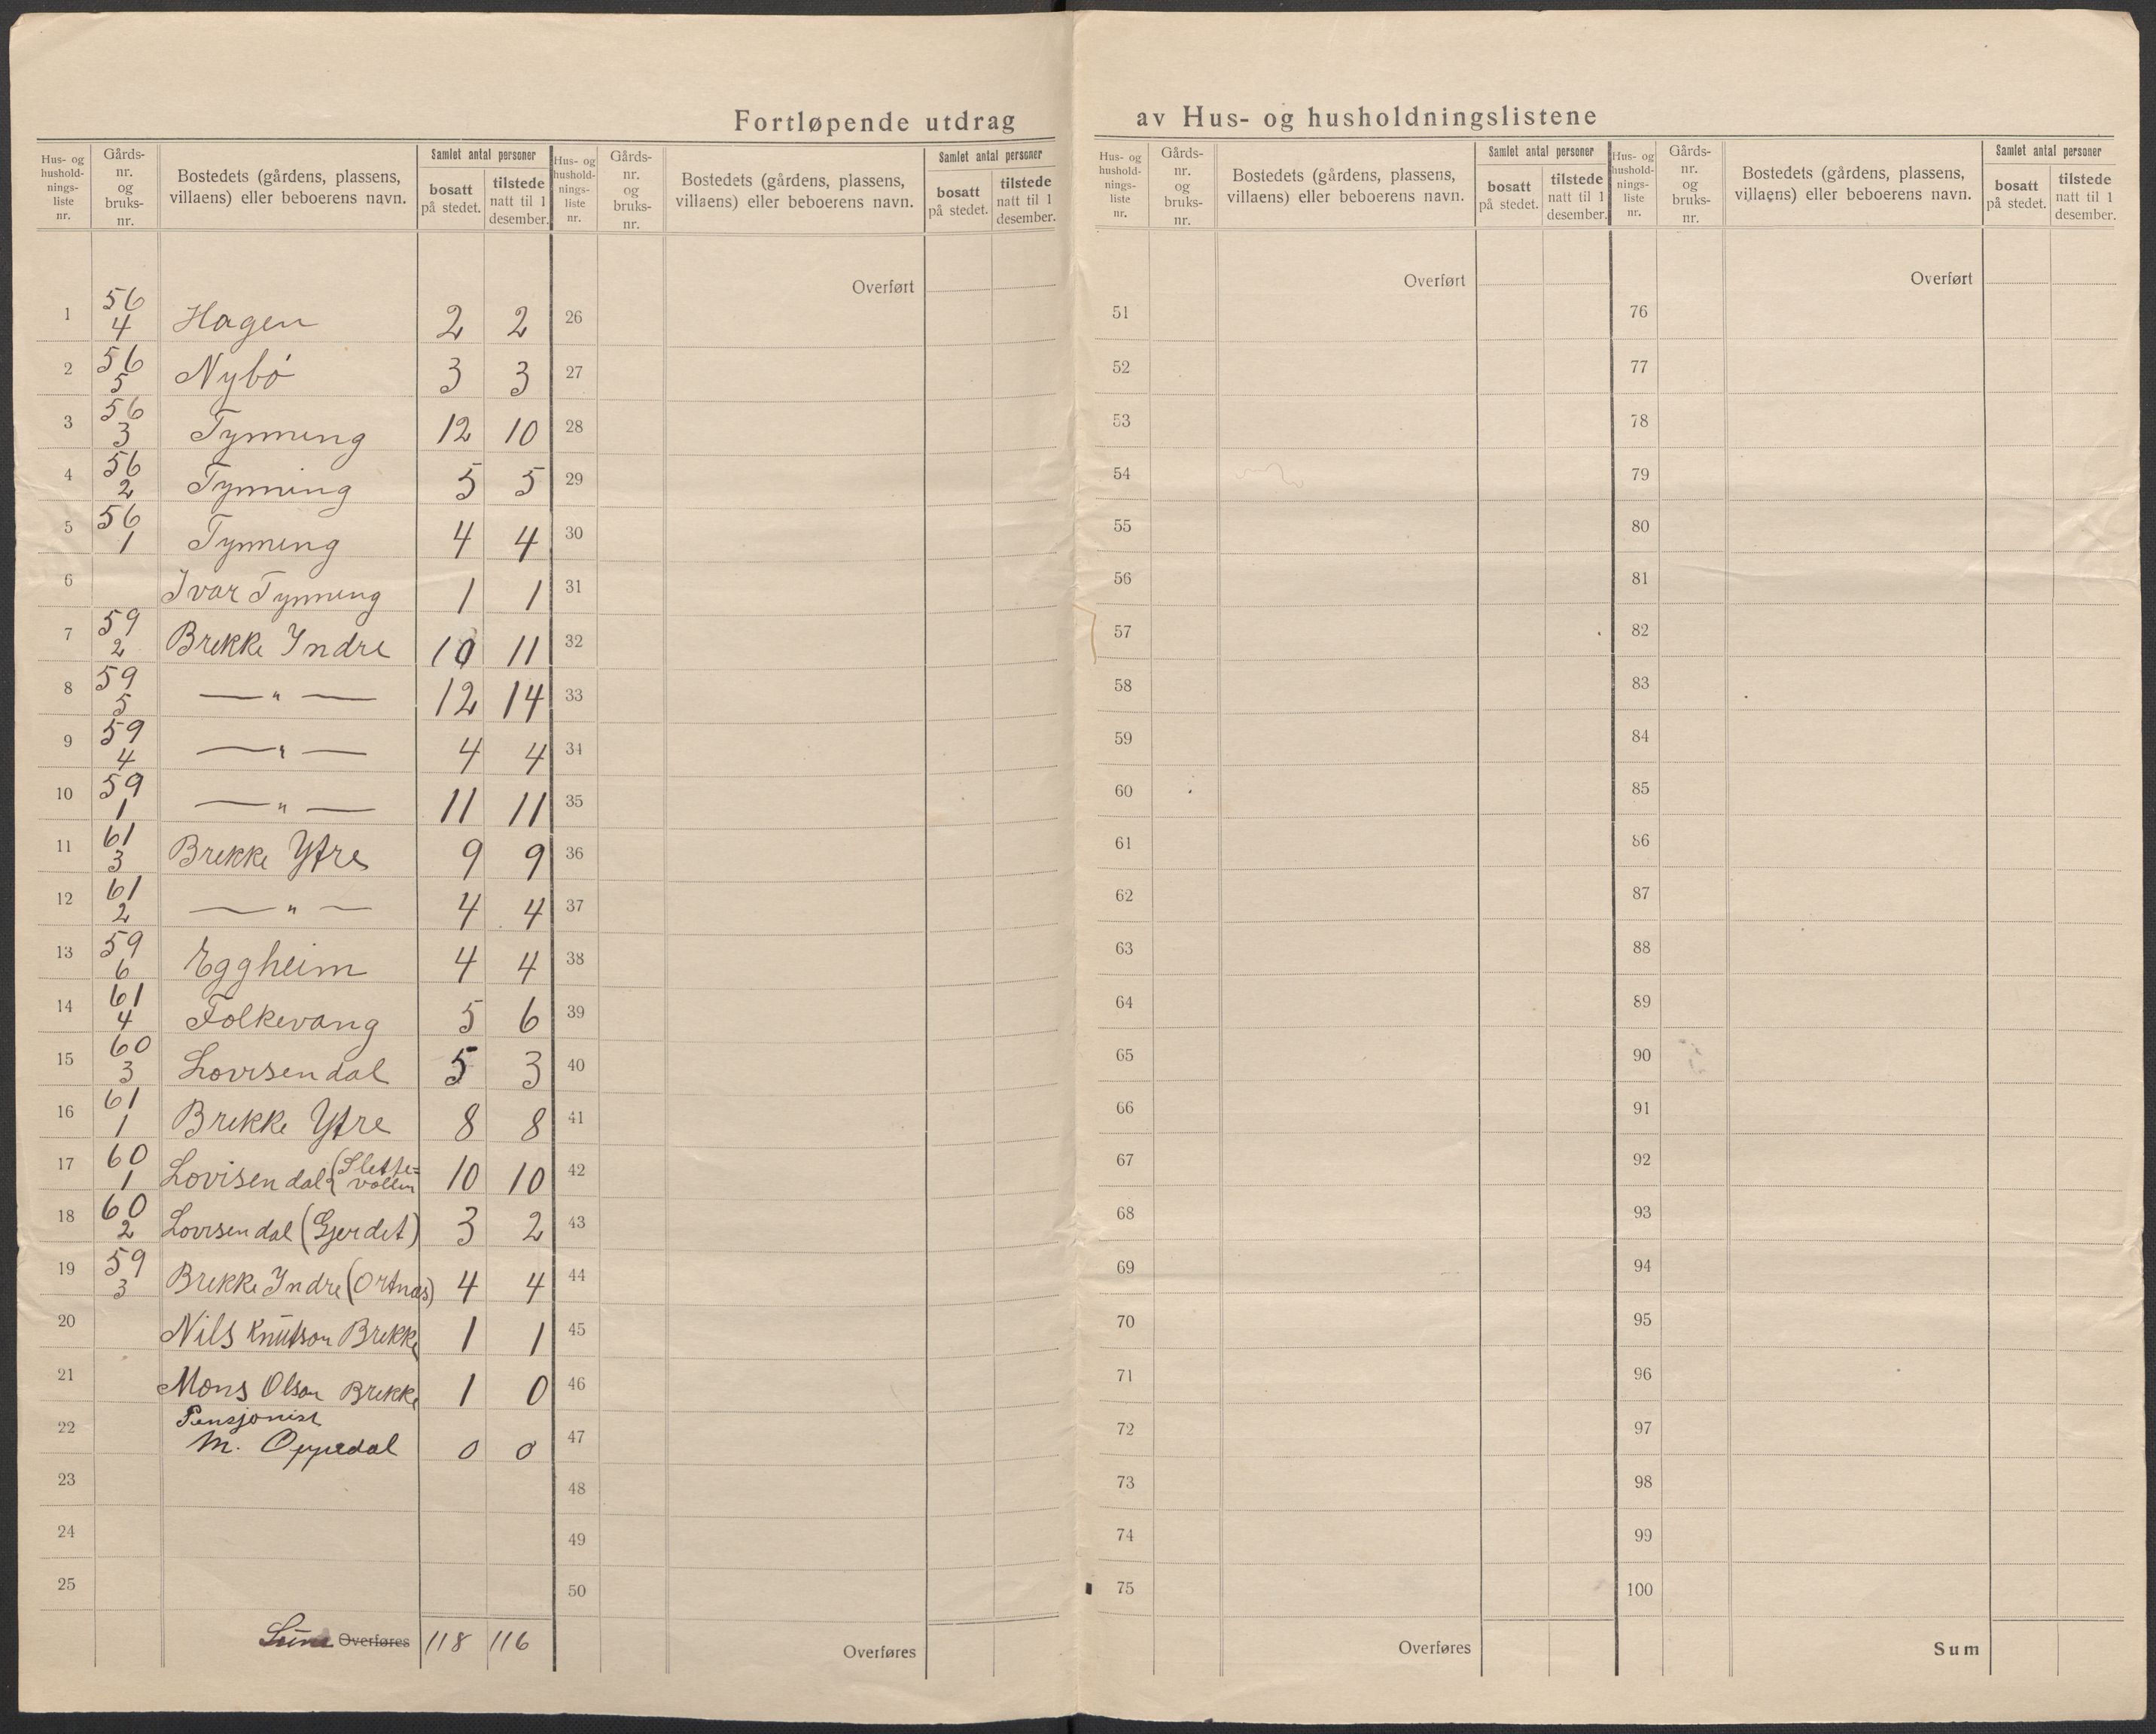 Fortløpende utdrag av Hus- og husholdningslistene
Hus- og hushold- nings- liste nr.
Gårds- nr. og bruks- nr.
Bostedets (gårdens, plassens, villaens) eller beboerens navn.
Samlet antal personer
bosatt på stedet.
tilstede natt til 1 desember.
1 56 4 Hagen 2 2
2 56 5 Nybö 3 3
3 56 3 Tynning 12 10
4 56 2 Tynning 5 5
5 56 1 Tynning 4 4
6 Ivar Tynning 1 1
7 59 2 Brekke Indre 10 11
8 59 5 — " — 12 14
9 59 4 — " — 4 4
10 59 1 — " — 11 11
11 61 3 Brekke Ytre 9 9
12 61 2 — " — 4 4
13 59 6 Eggheim 4 4
14 61 4 Folkevang 5 6
15 60 3 Lovisendal 5 3
16 61 1 Brekke Ytre 8 8
17 60 1 Lovisendal (Slette= vollen 10 10
18 60 2 Lovisendal (Gjerdet) 3 2
19 59 3 Brekke Indre (Ortnas) 4 4
20 Nils Knutson Brekke 1 1
21 Mons Olson Brekke 1 0
22 Pensjonist
M. Oppedal 0 0
23
24
25
Sum Overføres 118 116
Hus- og hushold- nings- liste nr.
Gårds- nr. og bruks- nr.
Bostedets (gårdens, plassens, villaens) eller beboerens navn.
Samlet antal personer
bosatt på stedet.
tilstede natt til 1 desember.
Overført
26
27
28
29
30
31
32
33
34
35
36
37
38
39
40
41
42
43
44
45
46
47
48
49
50
Overføres
Hus- og hushold- nings- liste nr.
Gårds- nr. og bruks- nr.
Bostedets (gårdens, plassens, villaens) eller beboerens navn.
Samlet antal personer
bosatt på stedet.
tilstede natt til 1 desember.
Overført
51
52
53
54
55
56
57
58
59
60
61
62
63
64
65
66
67
68
69
70
71
72
73
74
75
Overføres
Hus- og hushold- nings- liste nr.
Gårds- nr. og bruks- nr.
Bostedets (gårdens, plassens, villaens) eller beboerens navn.
Samlet antal personer
bosatt på stedet.
tilstede natt til 1 desember.
Overført
76
77
78
79
80
81
82
83
84
85
86
87
88
89
90
91
92
93
94
95
96
97
98
99
100
Sum